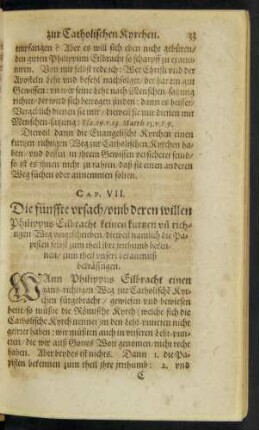 zur Catholischen Kyrchen. 33
empfangen? Aber es will sich eben nicht gebüren/
den guten Philippum Eilbracht so scharpff zu exami-
niren. Von mir selbst rede ich: Wer Christi und der
Aposteln Lehr und befelch nachfolget, der hat ein gut
Gewissen: un wer seine Lehr nach Menschen-satzung
richtet/ der wird sich betrogen finden: dann es heisset:
Vergeblich dienen sie mir/ dieweil sie mir dienen mit
Menschen-satzung: Esa. 29. v. 13. Matth. 15. v. 7. 9.
Dieweil dann die Euangelische Kyrchen einen
kurtzen richtigen Weg zur Catholischen Kyrchen ha-
ben/ und dessen in ihrem Gewissen versichert seind/
so ist es ihnen nicht zu rahten, daß sie einen anderen
Weg suchen oder annemmen sollen.
CAP. VII.
Die fünffte ursach/ umb deren willen
Philippus Eilbracht keinen kurtzen un rich-
tigen Weg vorgeschrieben, dieweil namlich die Pa-
pisten selbst zum theil ihre jrrthumb beken-
nen/ zum theil unsere bekanntnuß
bekräfftigen.
WAnn Philippus Eilbracht einen
gantz-richtigen Weg zur Catholischen Kyr-
chen fürgebracht/ gewiesen und bewiesen
hett/ so müßte die Römische Kyrch/ welche sich die
Catholische Kyrch nennet/ in den Lehr-puncten nicht
geirret haben: wir müßten auch in unseren Lehr-punc-
ten, die wir auß Gottes Wort genommen/ nicht recht
haben. Aber beydes ist nichts. Dann 1. die Pa-
pisten bekennen zum theil ihre jrrthumb: 2. und
C